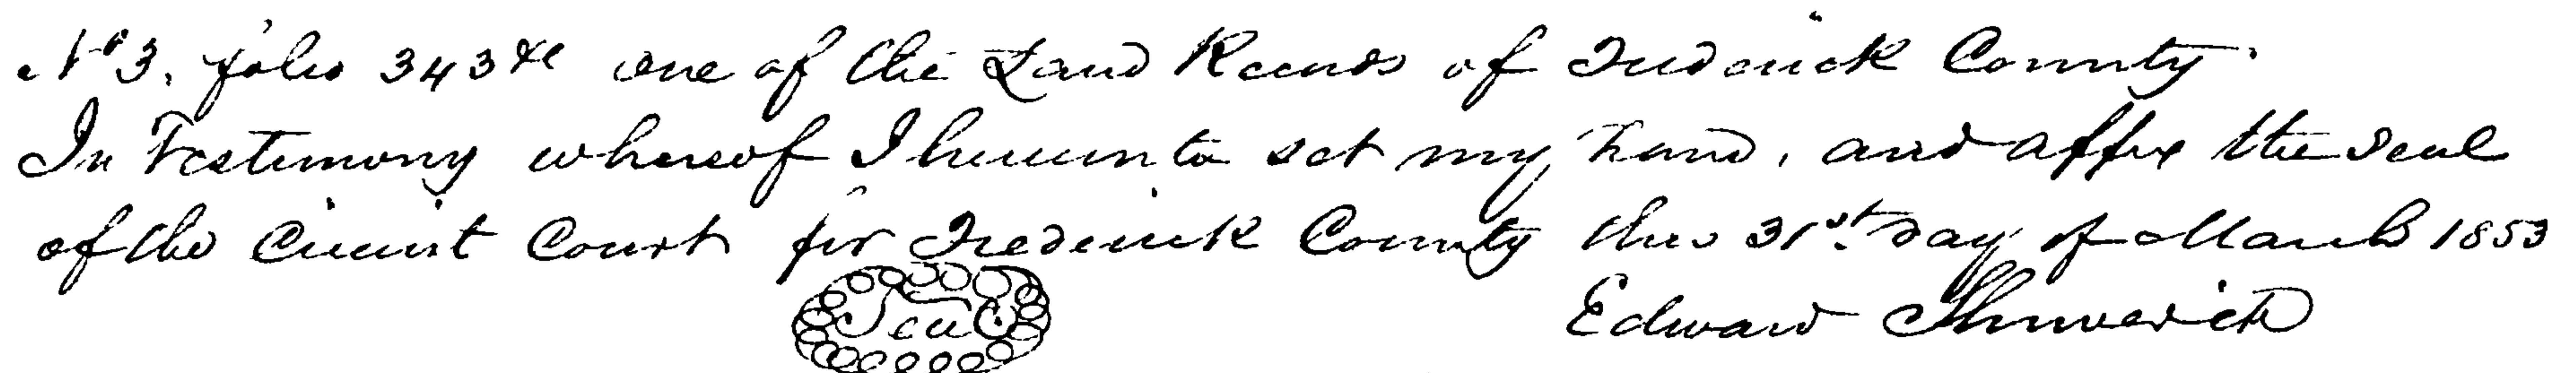 No 3, folio 343 &c one of the Land Records of Frederick County.
In Testimony whereof I hereunto set my hand, and affix the seal
of the Circuit Court for Frederick County this 31st day of March 1853
Seal
Edward Shriver Clk